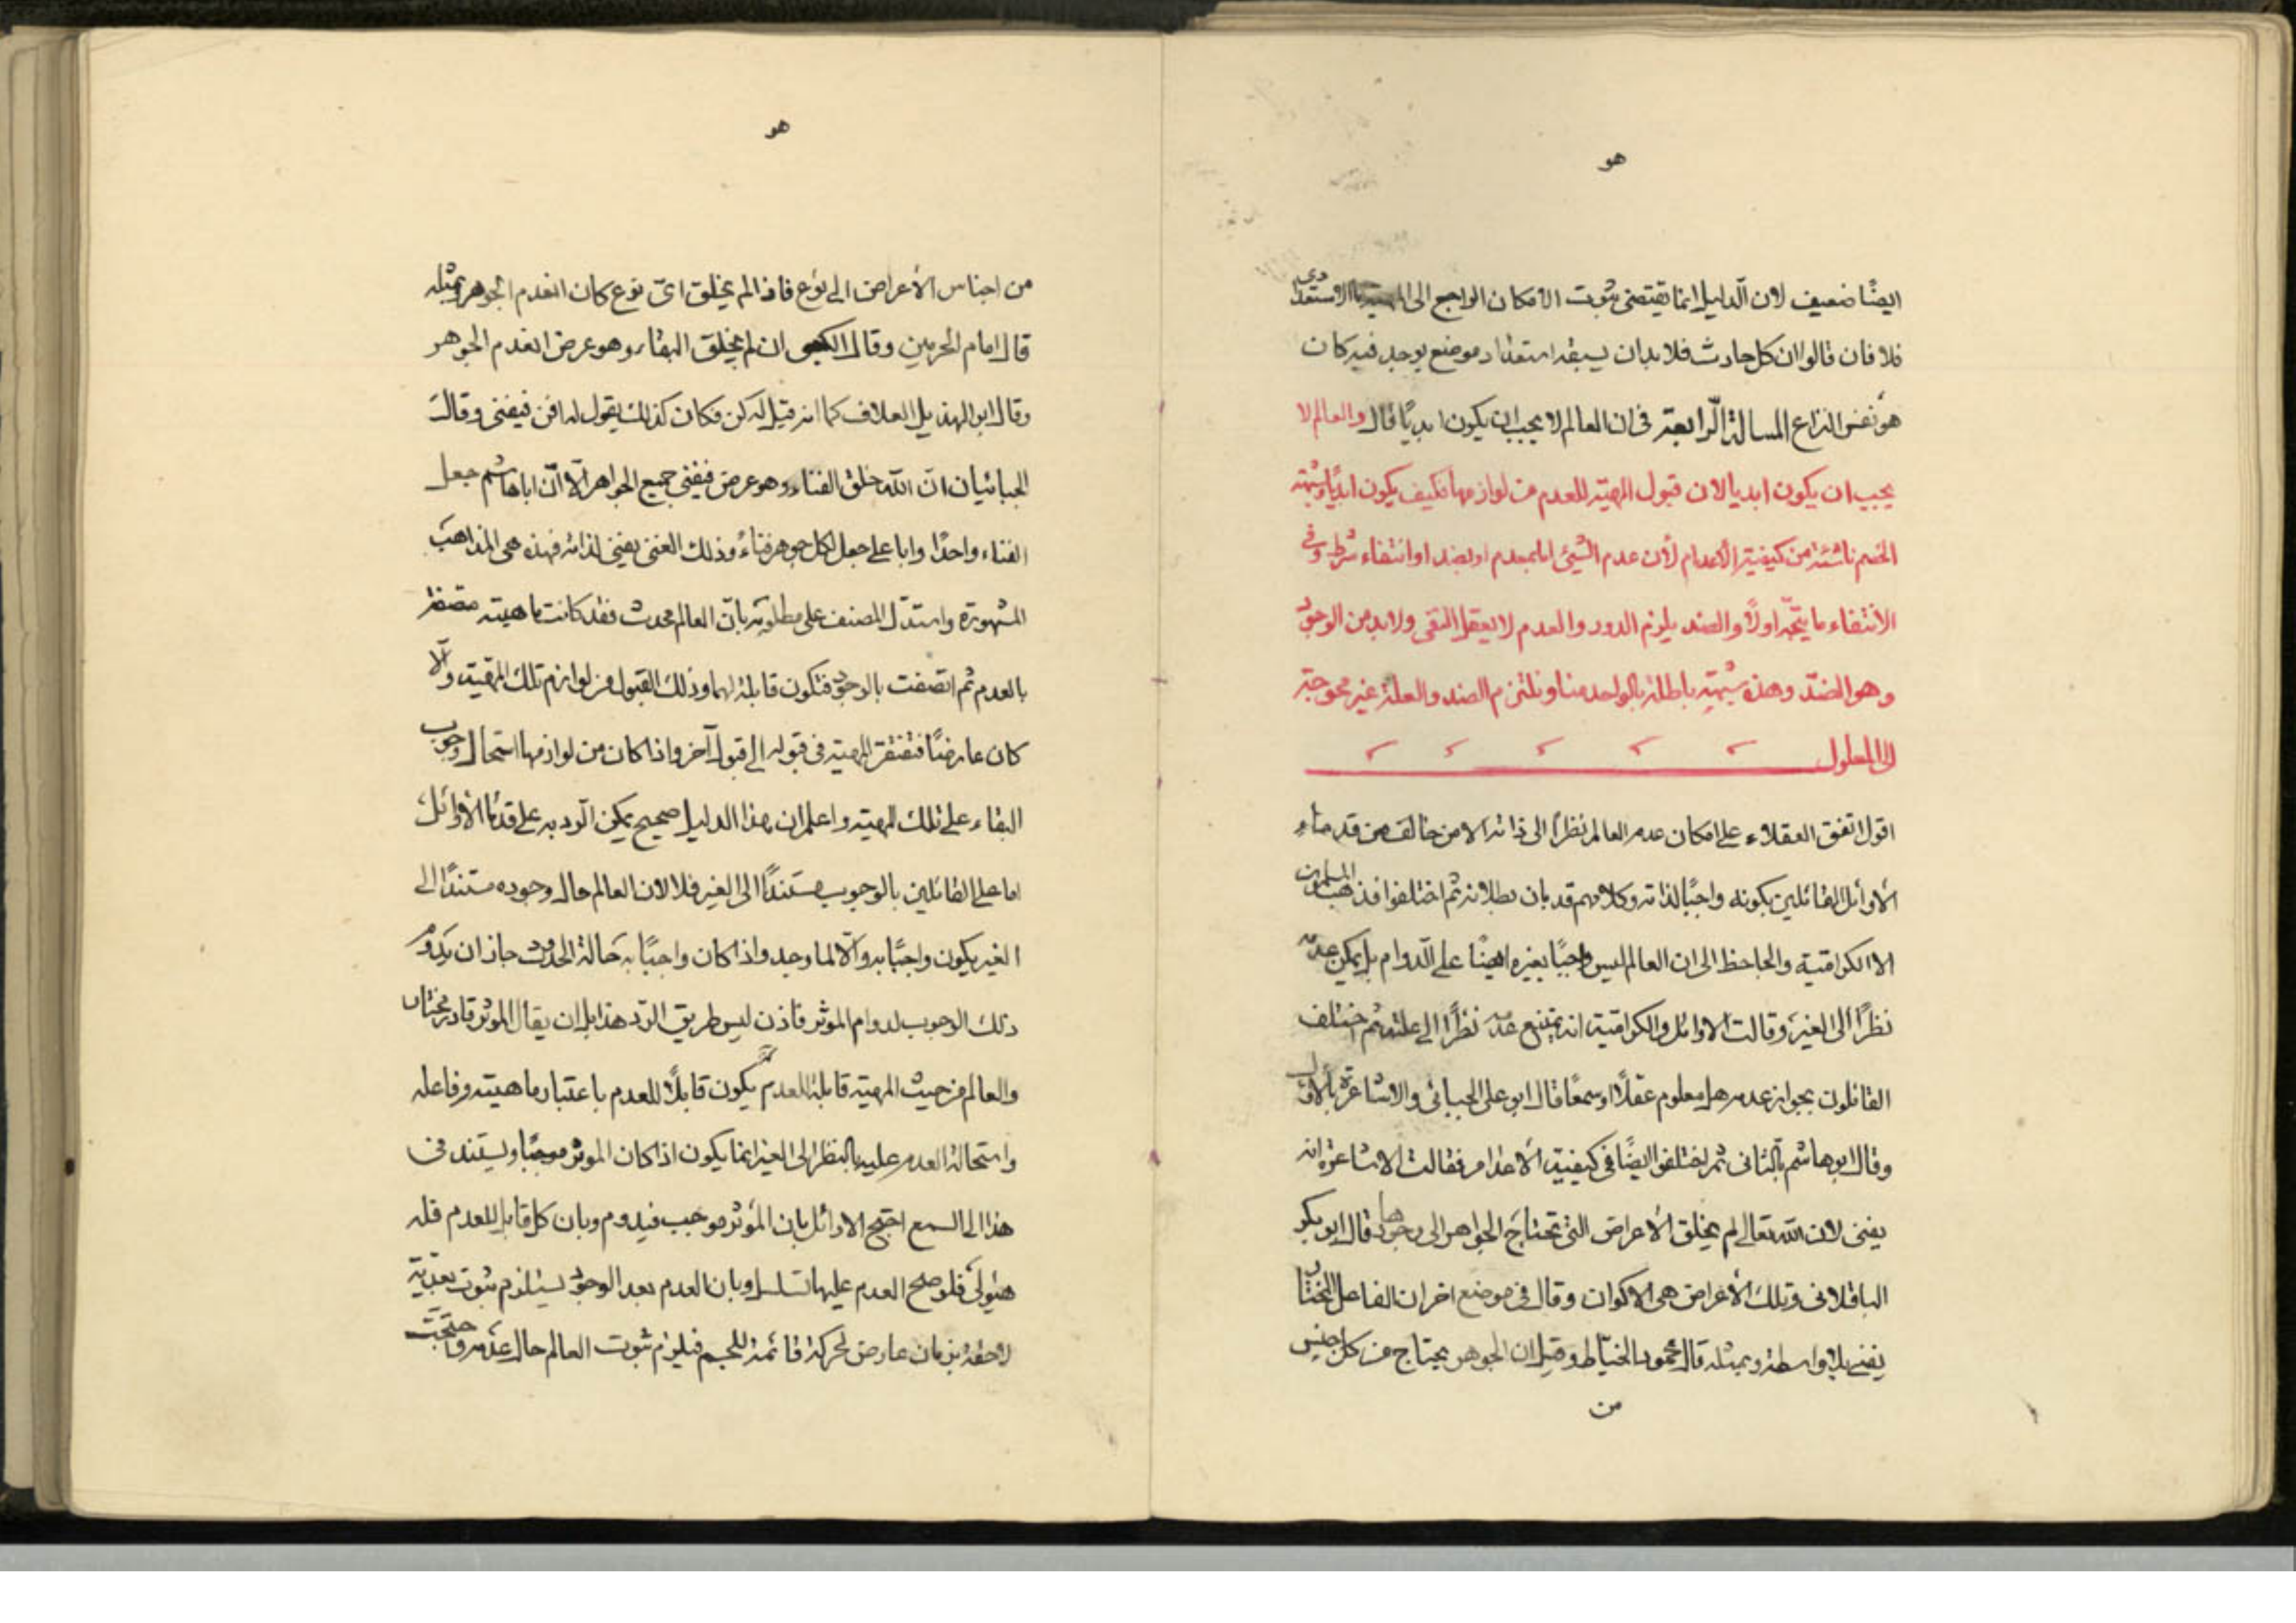 هو
ايضًا ضعيف لان الدليل انما يقتضى ثبوت الامكان الراجع الى المهية اما الاستعدادى
فلا فان قالوا ان كل حادث فلا بد ان يسبقه استعداد موضع يوجد فيه كان
هو نفس النزاع المسالة الرابعة فى ان العالم لا يجب ان يكون ابديًا قال والعالم لا
يجب ان يكون ابديا لان قبول المهية للعدم من لوازمها فكيف يكون ابديًا وشبهة
الخصم ناشئة من كيفية الأعدام لأن عدم الشيئ اما لمعدم او بضد او انتفاء شرط وفى
الأنتفاء ما يتجه اولًا والضد يلزم الدور والعدم لا يعقل التقى ولا بد من الوجود
وهو الضدّ وهذه شبهة باطلة بالواحد منا ونلتزم الضد والعلة غير محوجة
الى المعلول
اقول اتفق العقلاء على امكان عدم العالم نظرًا الى ذاته الا من خالف من قدماء
الأوائل القائلين بكونه واجبًا لذاته وكلامهم قد بان بطلانه ثم اختلفوا فذهب المسلمون
الا الكرامية والجاحظ الى ان العالم ليس واجبًا بغيره ايضًا على الدوام بل يمكن عدمه
نظرًا الى الغير وقالت الاوائل والكرامية انه يمتنع عدمه نظرًا الى علته ثم اختلف
القائلون بجواز عدمه هل معلوم عقلًا او سمعًا قال ابو على الجبائى والاشاعرة بالأول
وقال ابو هاشم بالثانى ثم اختلفوا ايضًا فى كيفية الأعدام فقالت الاشاعرة انه
يفنى لان الله تعالى لم يخلق الأعراض التى تحتاج الجواهر الى وجودها قال ابو بكر
الباقلانى وتلك الأعراض هى الاكوان وقال فى موضع اخر ان الفاعل المختار
يفنى بلا واسطة وبمثله قال محمود الخياط وقيل ان الجوهر يحتاج من كل جنس
من
هو
من اجناس الأعراض الى نوع فاذا لم يخلق اىّ نوع كان انعدم الجوهر وبمثله
قال امام الحرمين وقال الكعبى ان لم يخلق البقاء وهو عرض انعدم الجوهر
وقال ابو الهذيل العلاف كما انه قيل له كن فكان كذلك يقول له افن فيفنى وقال
الجبائيان انّ الله خلق الفناء وهو عرض فيفنى جميع الجواهر الّا انّ ابا هاشم جعل
الفناء واحدًا وابا على جعل لكل جوهر فناءً وذلك الفنى يفنى لذاته فهذه هى المذاهب
المشهورة واستدل المصنف على مطلوبه بانّ العالم محدث فقد كانت ماهيته متصفة
بالعدم ثم اتصفت بالوجود فتكون قابلة لهما وذلك القبول من لوازم تلك المهية والّا
كان عارضًا فتفتقر المهية فى قبوله الى قبول آخر واذا كان من لوازمها استحال وجوب
البقاء على تلك المهية واعلم ان هذا الدليل صحيح يمكن الرد به على قدماء الأوائل
اما على القائلين بالوجوب مستندًا الى الغير فلا لان العالم حال وجوده مستندًا الى
الغير يكون واجبًا به والّا لما وجد واذا كان واجبًا به حالة الحدوث جاز ان يدوم
ذلك الوجوب لدوام الموثر فاذن ليس طريق الرد هذا بل ان يقال الموثر قادر مختار
والعالم من حيث المهية قابلة للعدم يكون قابلًا للعدم باعتبار ماهيته وفاعله
واستحالة العدم عليه بالنظر الى الغير انما يكون اذا كان الموثر موجبًا ويستند فى
هذا الى السمع احتج الاوائل بان المؤثر موجب فيدوم وبان كل قابل للعدم فله
هيولى فلو صح العدم عليها تسلسل وبان العدم بعد الوجود يستلزم ثبوت بعدية
لاحقة بزمان عارض لحركة قائمة للجسم فيلزم ثبوت العالم حال عدمه واحتجت